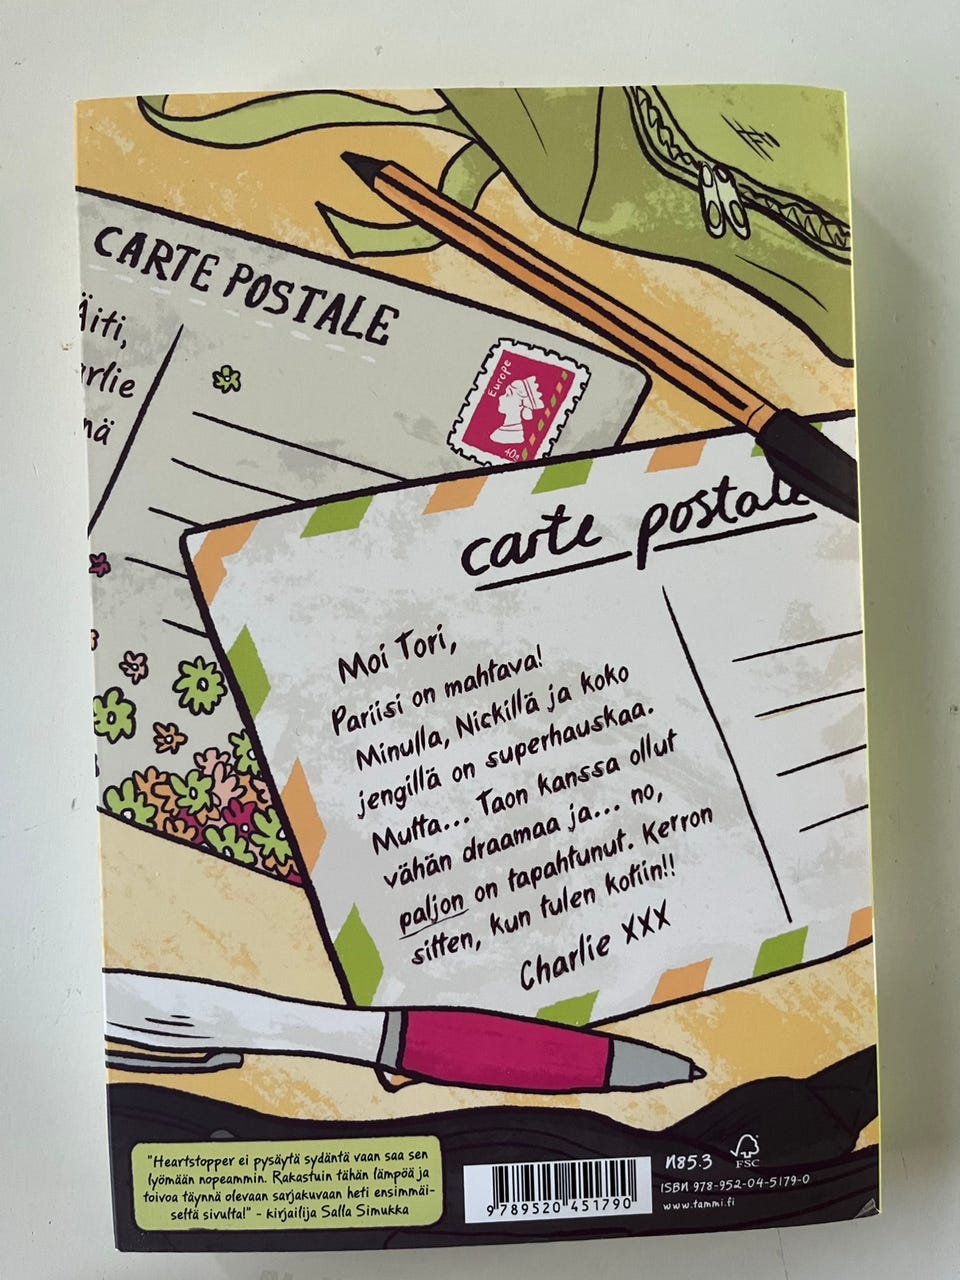 CARTE POSTALE
Äiti,
rlie
nä
Europe
carte postale
Moi Tori,
Pariisi on mahtava!
Minulla, Nickillä ja koko
jengillä on superhauskaa.
Mutta... Taon kanssa ollut
vähän draamaa ja... no,
paljon on tapahtunut. Kerron
sitten, kun tulen kotiin!!
Charlie XXX
"Heartstopper ei pysäytä sydäntä vaan saa sen
lyömään nopeammin. Rakastuin tähän lämpöä ja
toivoa täynnä olevaan sarjakuvaan heti ensimmäi-
seltä sivulta!" - kirjailija Salla Simukka
9 789520 451790
N85.3
FSC
ISBN 978-952-04-5179-0
www.tammi.fi